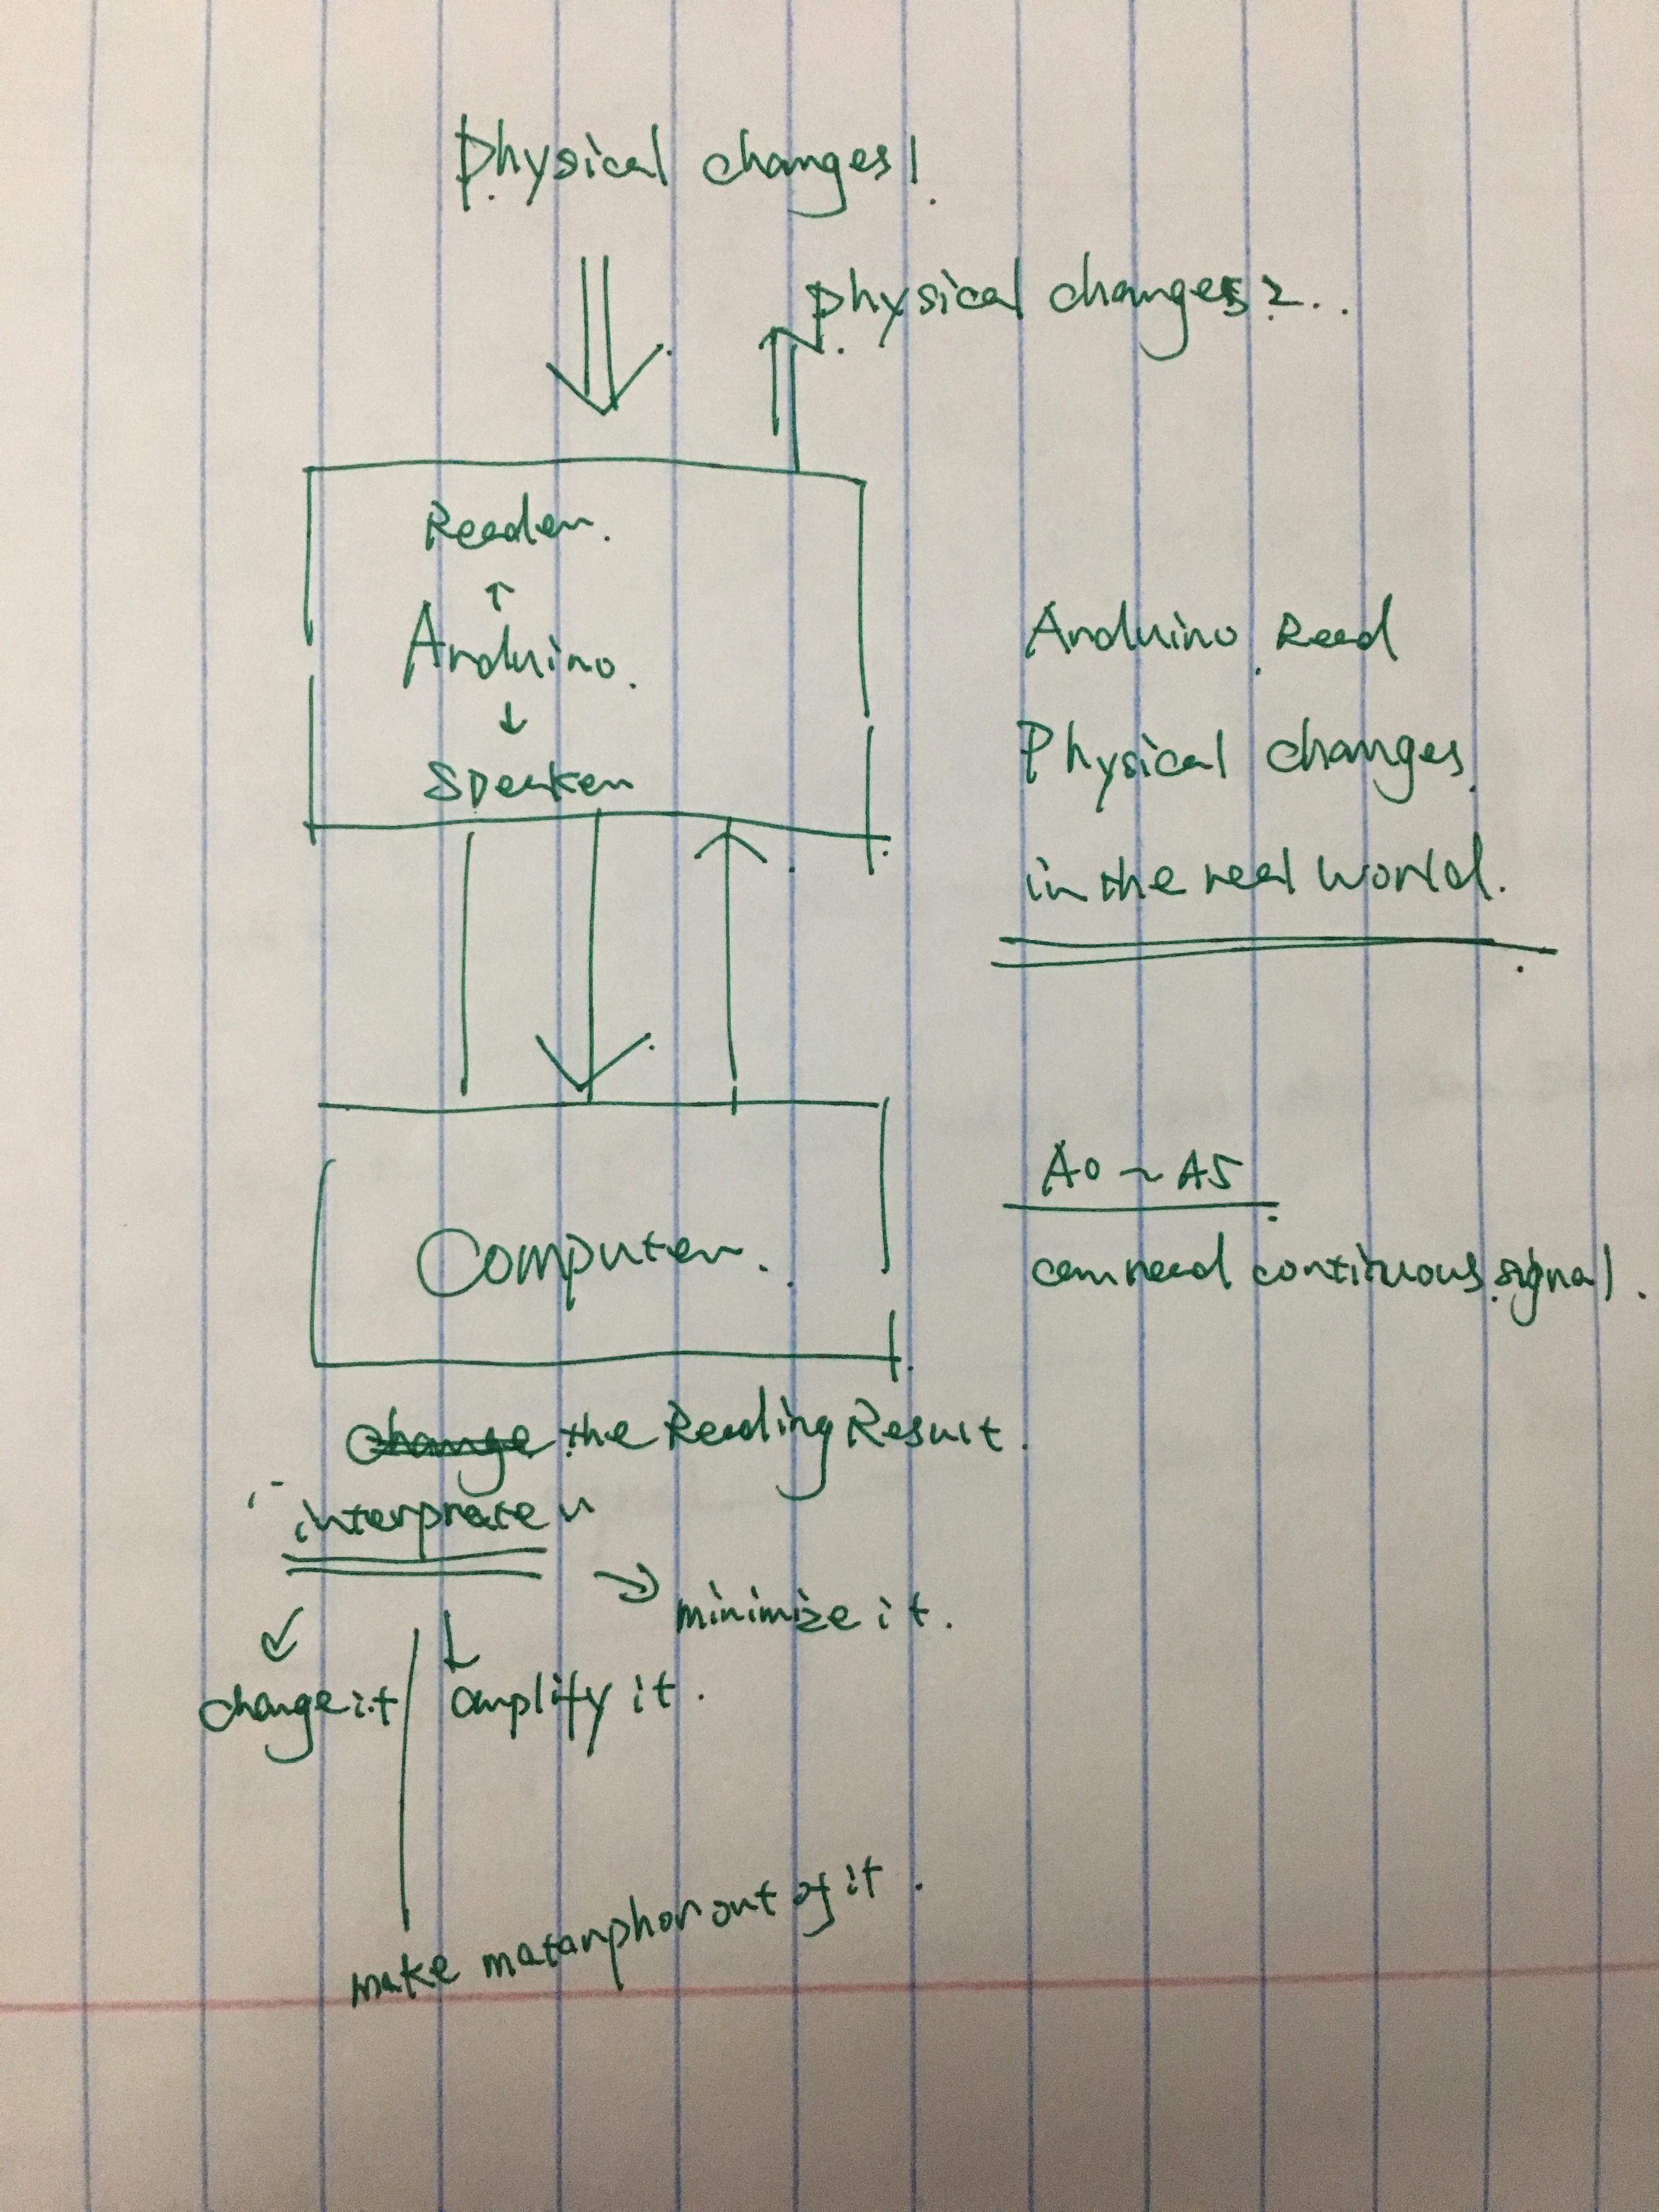 Physical changes 1.
physical changes 2..
Reader.
Arduino.
Speaker
Arduino Read
Physical changes
in the real world.
Computer.
A0 ~ A5
can read continuous signal.
change the Reading Result.
interprate
minimize it.
change it
amplify it.
make matarphor out of it.